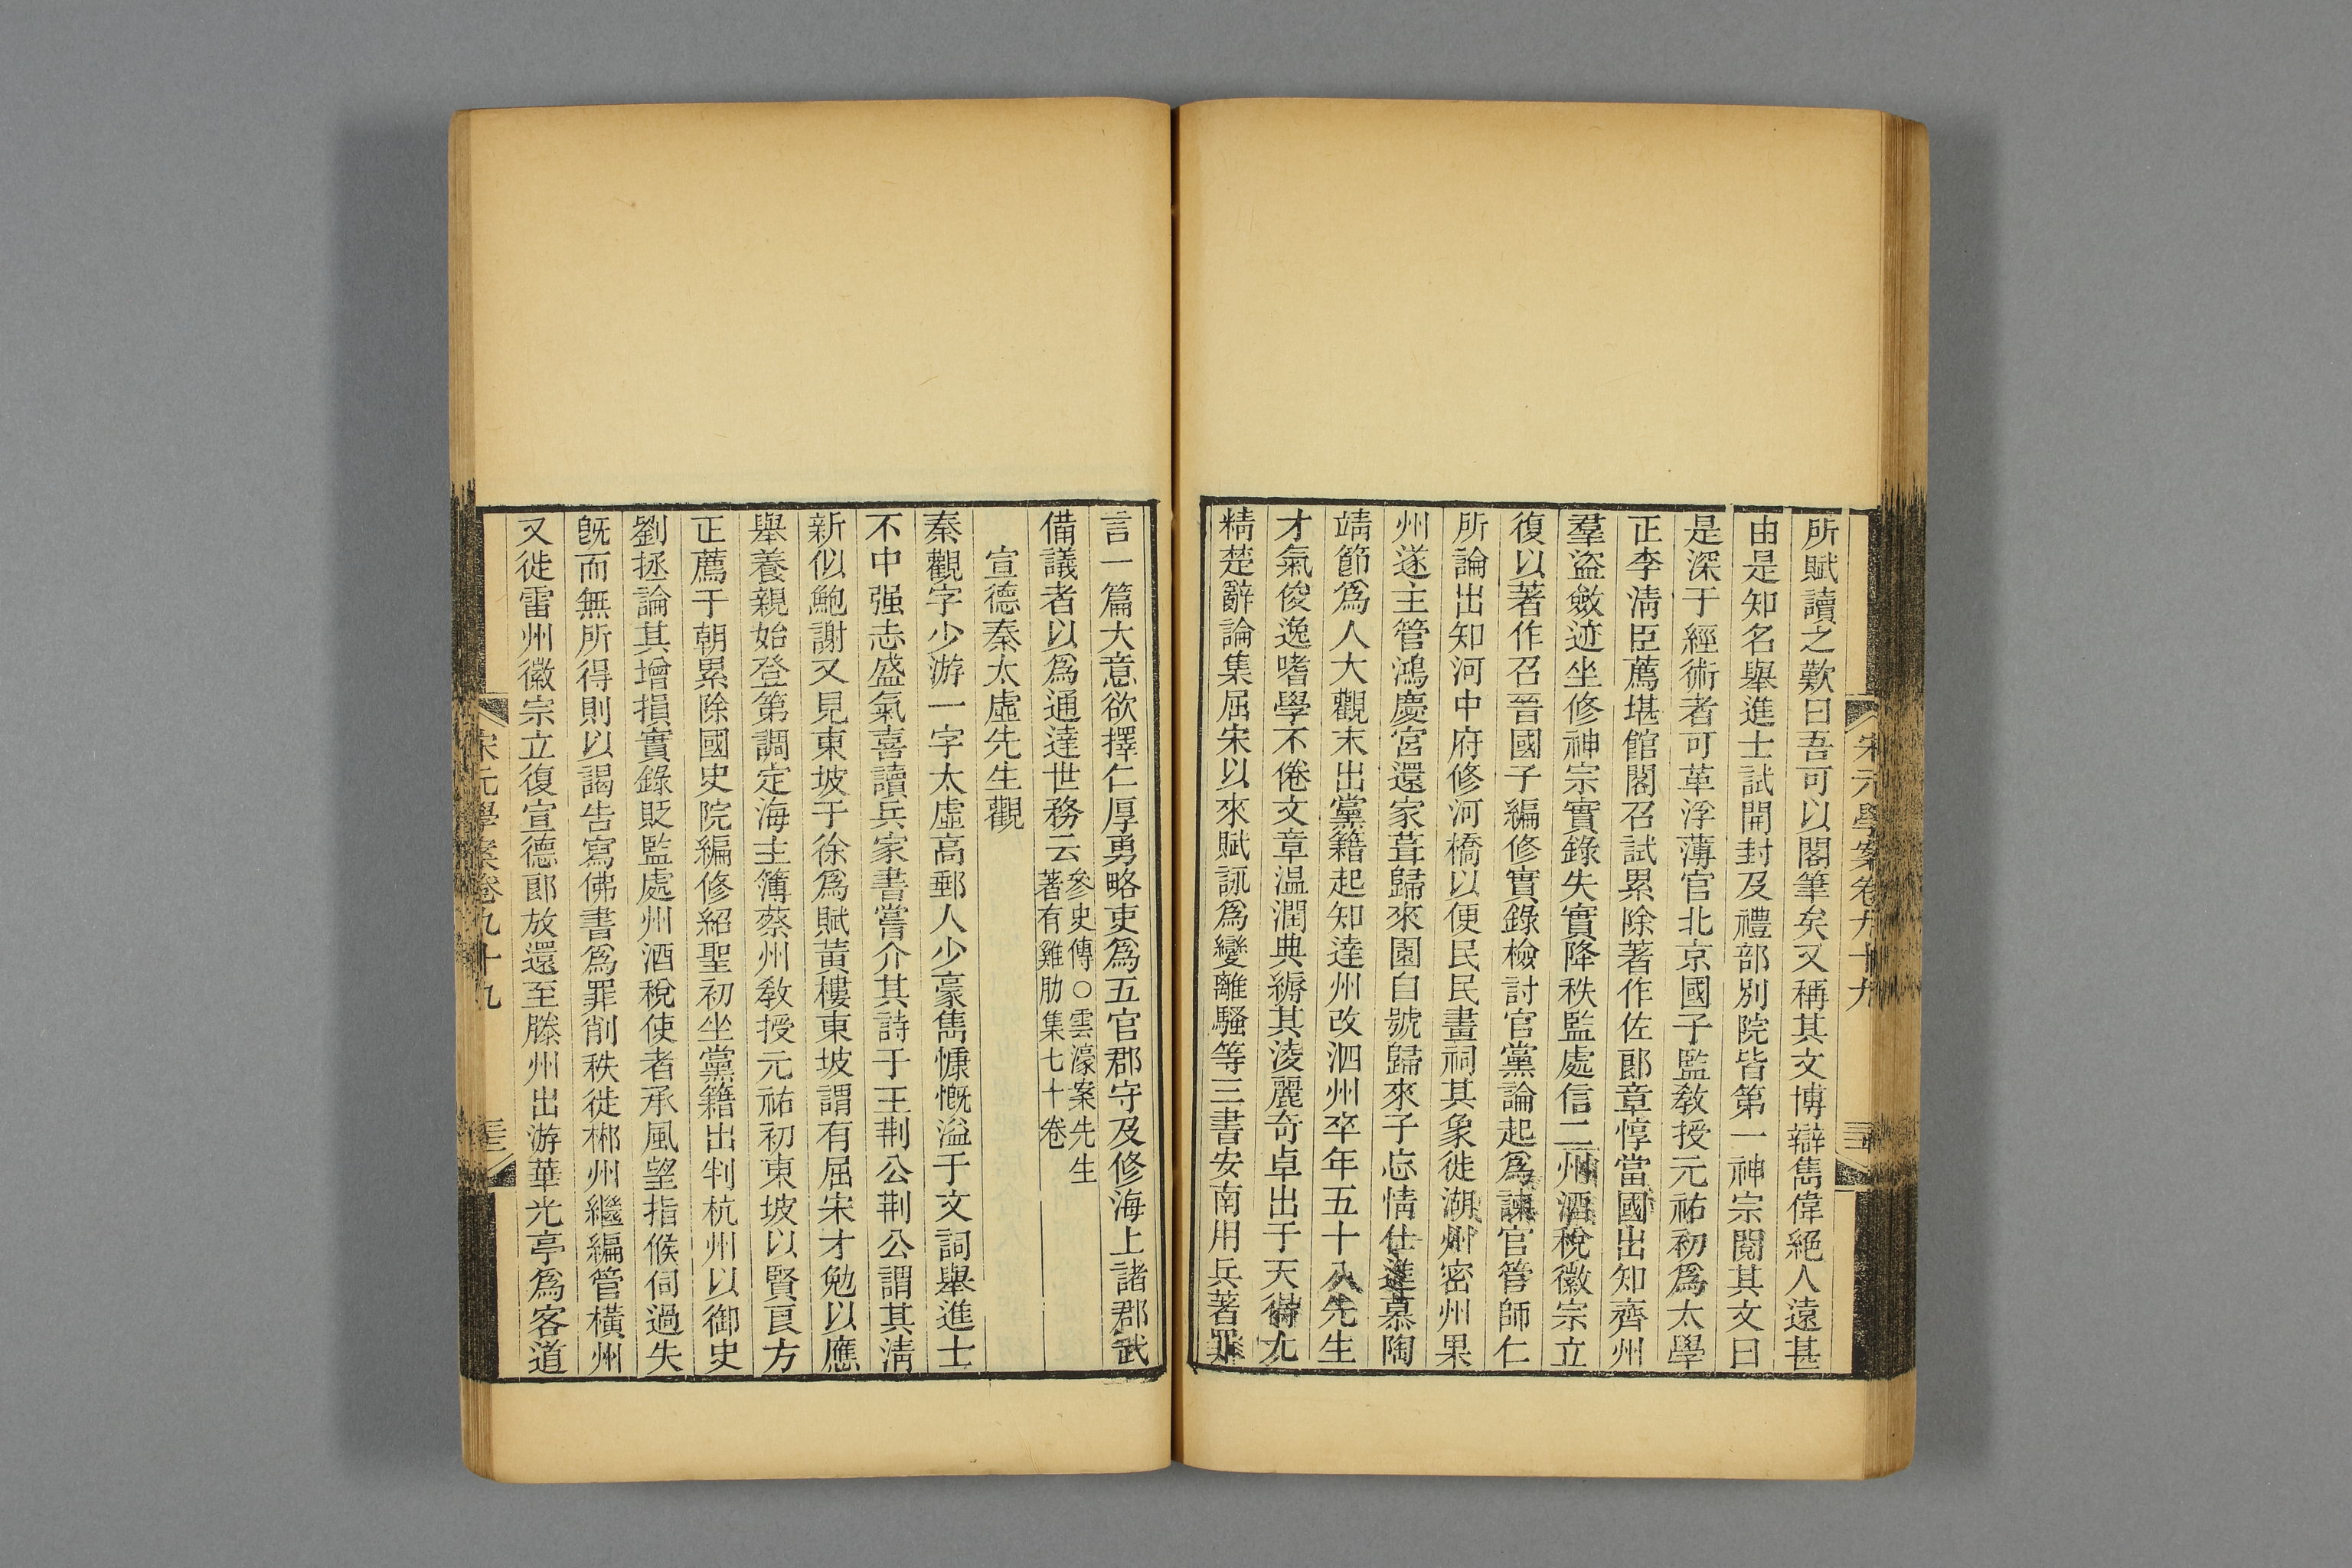 宋元學案卷九十九
所賦讀之歎曰吾可以閣筆矣又稱其文博辯雋偉絕人遠甚
由是知名舉進士試開封及禮部別院皆第一神宗閱其文曰
是深于經術者可革浮薄官北京國子監敎授元祐初爲太學
正李淸臣薦堪館閣召試累除著作佐郞章惇當國出知齊州
羣盜斂迹坐修神宗實錄失實降秩監處信二州酒稅徽宗立
復以著作召晉國子編修實錄檢討官黨論起爲諫官管師仁
所論出知河中府修河橋以便民民畫祠其象徙湖州密州果
州遂主管鴻慶宮還家葺歸來園自號歸來子忘情仕進慕陶
靖節爲人大觀末出黨籍起知達州改泗州卒年五十八先生
才氣俊逸嗜學不倦文章温潤典縟其淩麗奇卓出于天得尢
精楚辭論集屈宋以來賦詠爲變離騷等三書安南用兵著罪
言一篇大意欲擇仁厚勇略吏爲五官郡守及修海上諸郡武
備議者以爲通達世務云參史傳○雲濠案先生
著有雞肋集七十卷
宣德秦太虛先生觀
秦觀字少游一字太虛高郵人少豪雋慷慨溢于文詞舉進士
不中强志盛氣喜讀兵家書嘗介其詩于王荆公荆公謂其淸
新似鮑謝又見東坡于徐爲賦黃樓東坡謂有屈宋才勉以應
舉養親始登第調定海主簿蔡州敎授元祐初東坡以賢良方
正薦于朝累除國史院編修紹聖初坐黨籍出判杭州以御史
劉拯論其增損實錄貶監處州酒稅使者承風望指候伺過失
旣而無所得則以謁告寫佛書爲罪削秩徙郴州繼編管橫州
又徙雷州徽宗立復宣德郞放還至滕州出游華光亭爲客道
宋元學案卷九十九